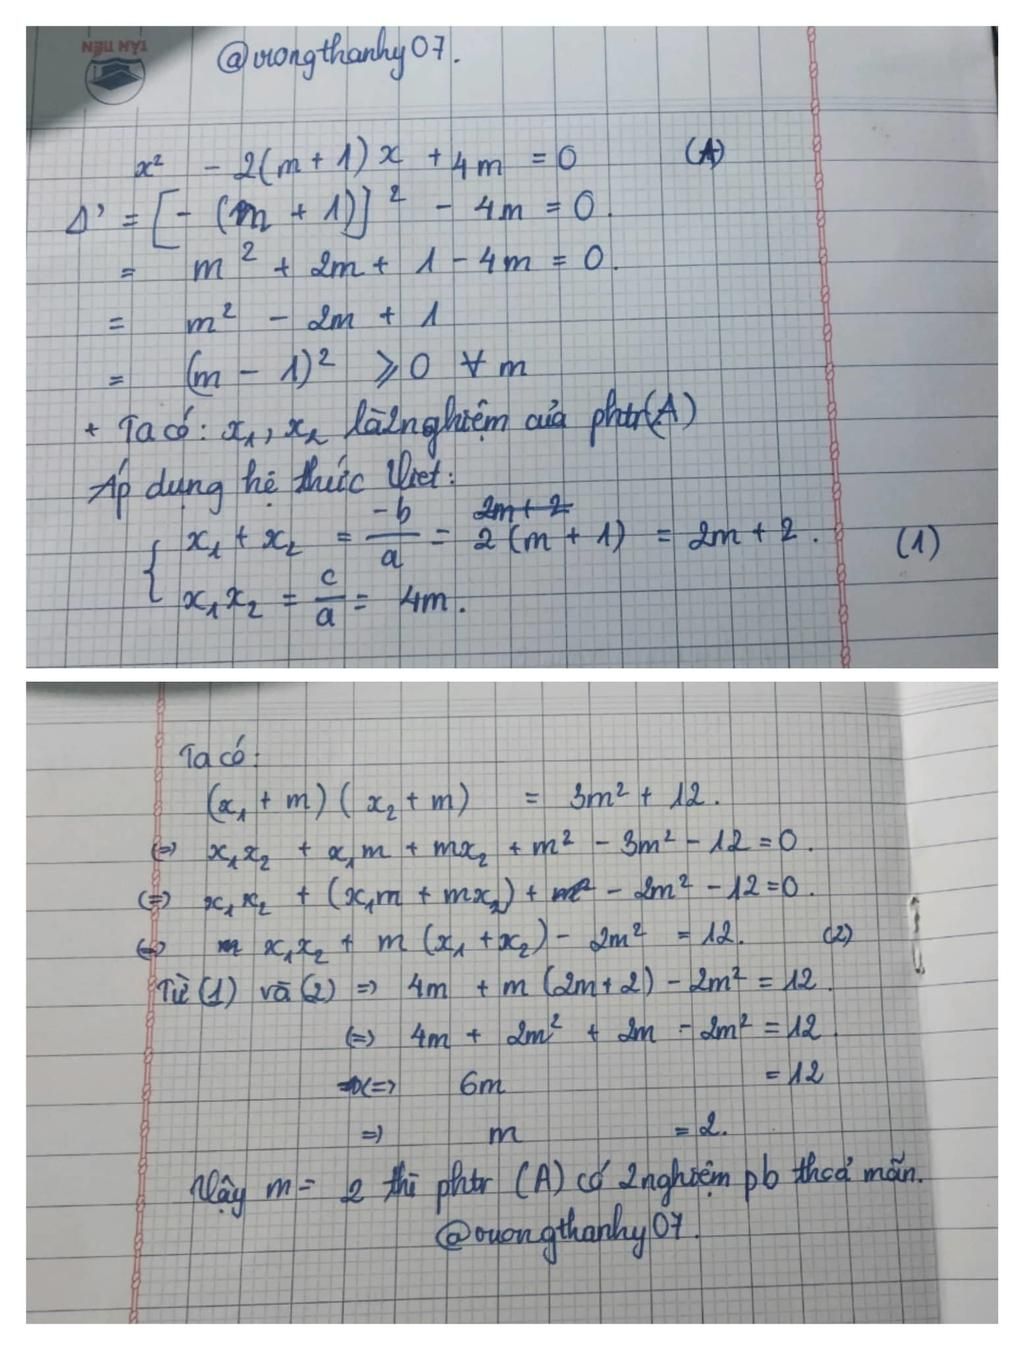 TÂN TIẾN
@vuongthanhy07.
x² - 2(m + 1)x + 4m = 0 (A)
Δ' = [- (m + 1)]² - 4m = 0.
= m² + 2m + 1 - 4m = 0.
= m² - 2m + 1
= (m - 1)² ⩾ 0 ∀ m
+ Ta có: x₁, x₂ là 2 nghiệm của phtr (A)
Áp dụng hệ thức Viet:
2m + 2
{ x₁ + x₂ = -b/a = 2(m + 1) = 2m + 2. (1)
x₁x₂ = c/a = 4m.
Ta có:
(x₁ + m)(x₂ + m) = 3m² + 12.
(=) x₁x₂ + x₁m + mx₂ + m² - 3m² - 12 = 0.
(=) x₁x₂ + (x₁m + mx₂) + m² - 2m² - 12 = 0.
(=) x₁x₂ + m(x₁ + x₂) - 2m² = 12. (2)
Từ (1) và (2) => 4m + m(2m + 2) - 2m² = 12.
(=) 4m + 2m² + 2m - 2m² = 12.
<=> 6m = 12
=) m = 2.
Vậy m = 2 thì phtr (A) có 2 nghiệm pb thoả mãn.
@vuongthanhy07.